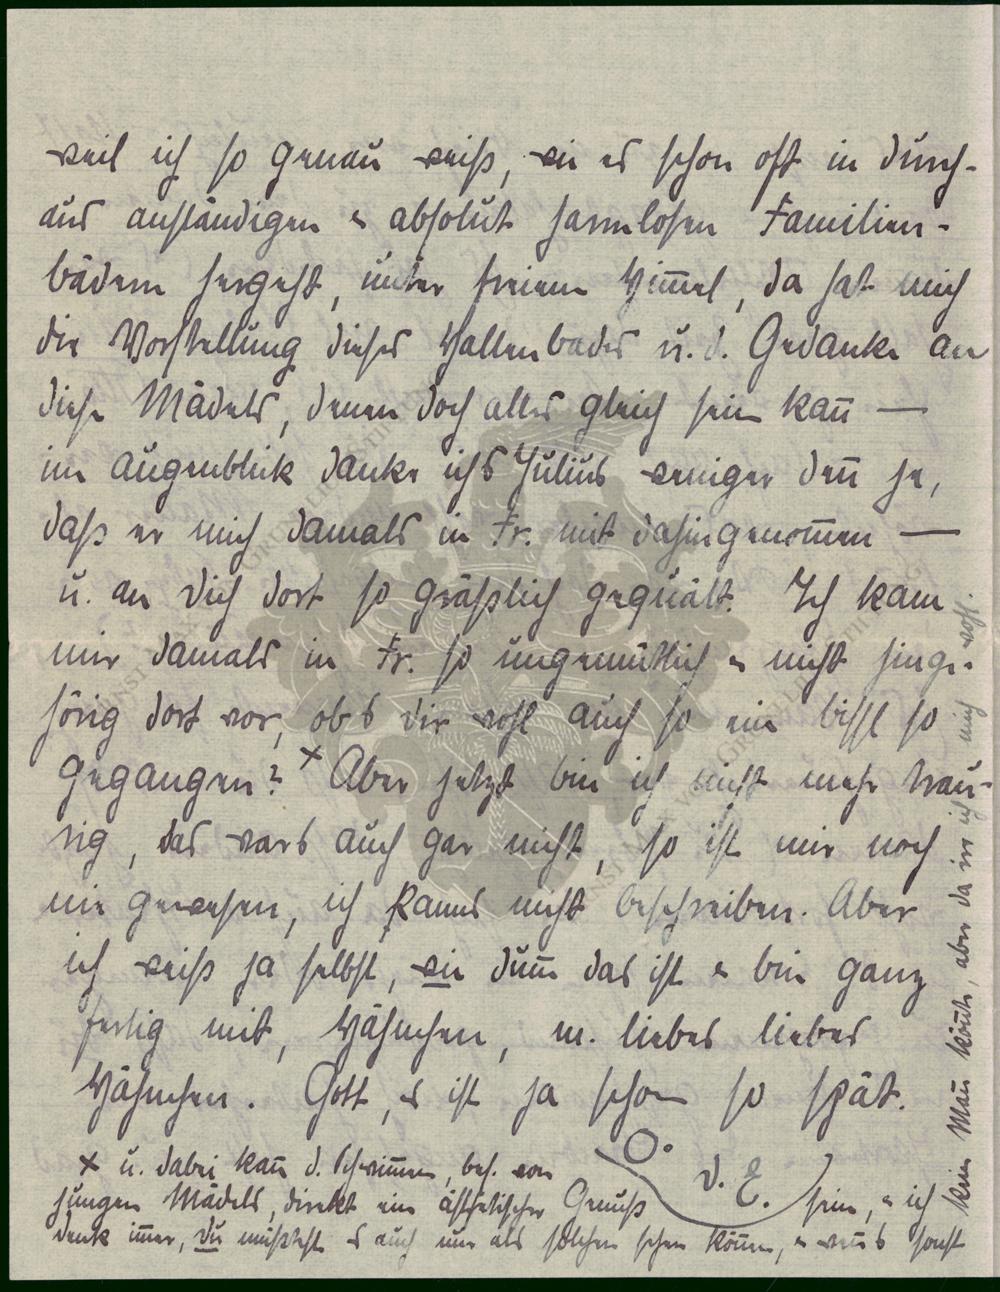 weil ich so genau weiß, wie es schon oft in durch-
aus anständigen & absolut harmlosen Familien-
bädern hergeht, unter freiem Himmel, da hat mich
die Vorstellung dieses Hallenbades u. d. Gedanke an
diese Mädels, denen doch alles gleich sein kan̄ —
im Augenblick danke ichs Julius weniger den̄ je,
daß er mich damals in Fr. mit dahingenom̄en —
u. an Dich dort so gräßlich gequält. Ich kam
mir damals in Fr. so ungemütlich & nicht hinge-
hörig dort vor, obs dir wohl auch so ein bissl so
gegangen? x Aber jetzt bin ich nicht mehr trau-
rig, das wars auch gar nicht, so ist mir noch
nie gewesen, ich kanns nicht beschreiben. Aber
ich weiß ja selbst, wie dum̄ das ist & bin ganz
fertig mit, Hähnchen, m. liebes liebes
Hähnchen. Gott, es ist ja schon so spät.
D. E.
x u. dabei kan̄ d. Schwim̄en, bes. von
jungen Mädels, direkt ein ästhetischer Genuß sein, & ich
denk im̄er, du müßtest es auch nur als solchen sehen kön̄en, & weñs sonst
kein Man̄ kön̄te, aber da irr ich mich wohl.